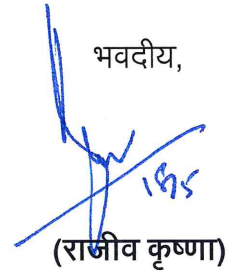 भवदीय,
(राजीव कृष्णा)